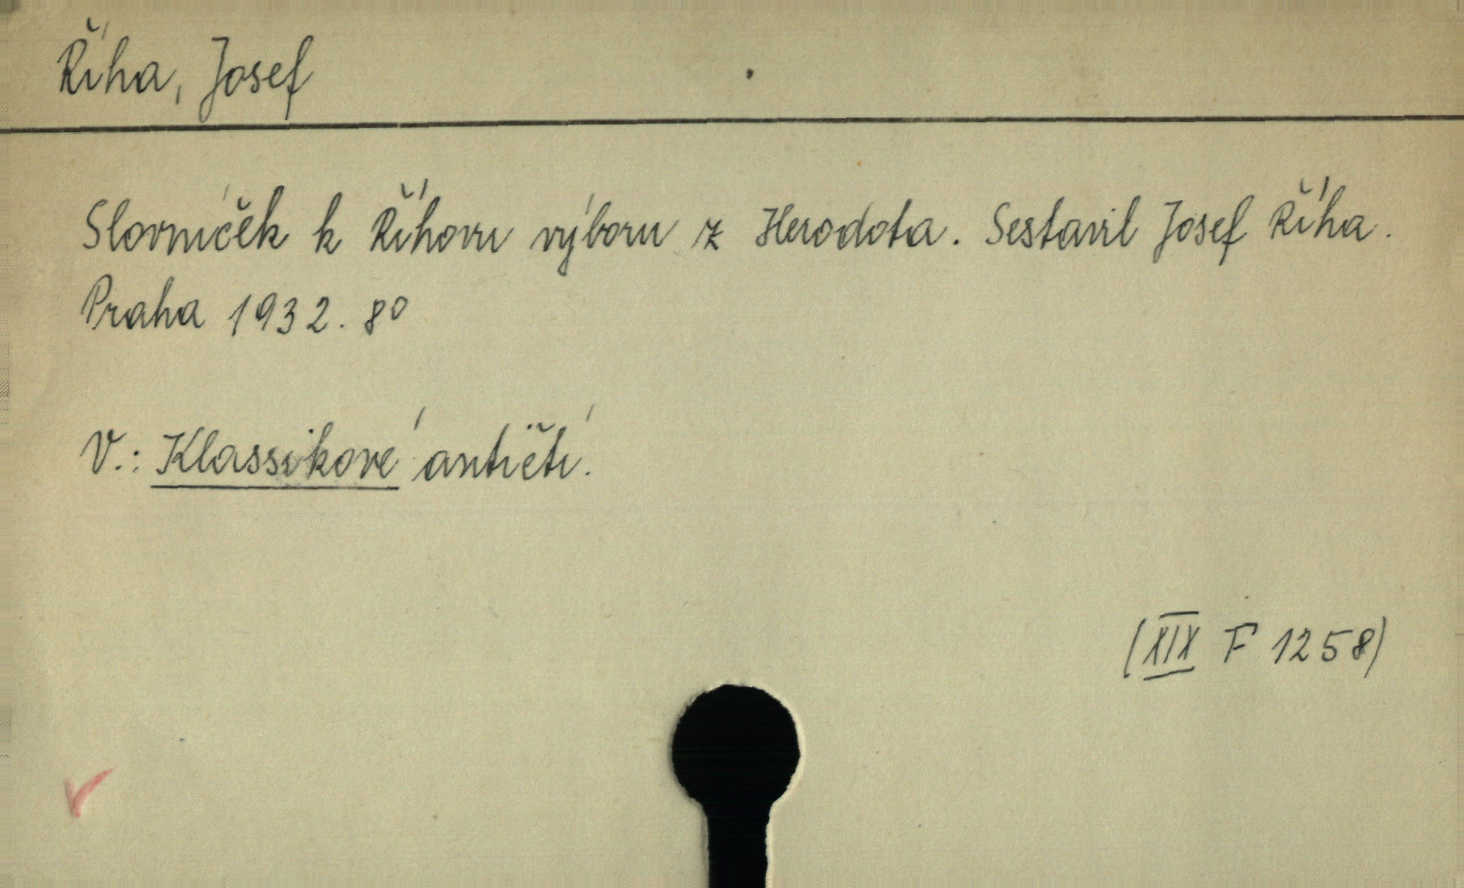 Říha, Josef
Slovníček k Říhovu výboru z Herodota. Sestavil Josef Říha.
Praha 1932. 8º
V.: Klassikové antičtí.
(XIX F 1258)